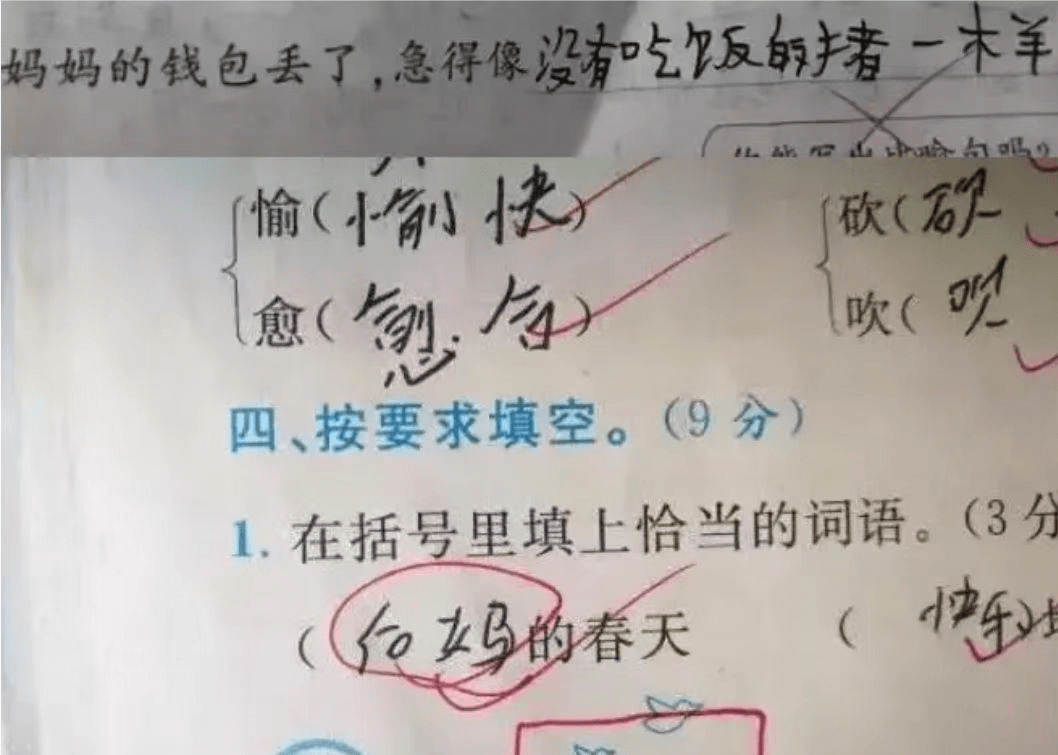 妈妈的钱包丢了,急得像没有吃饭的猪一样
愉(愉快) 砍(砍
愈(愈合) 吹(吹
四、按要求填空。(9分)
1. 在括号里填上恰当的词语。(3分
(后妈的春天 (快乐)